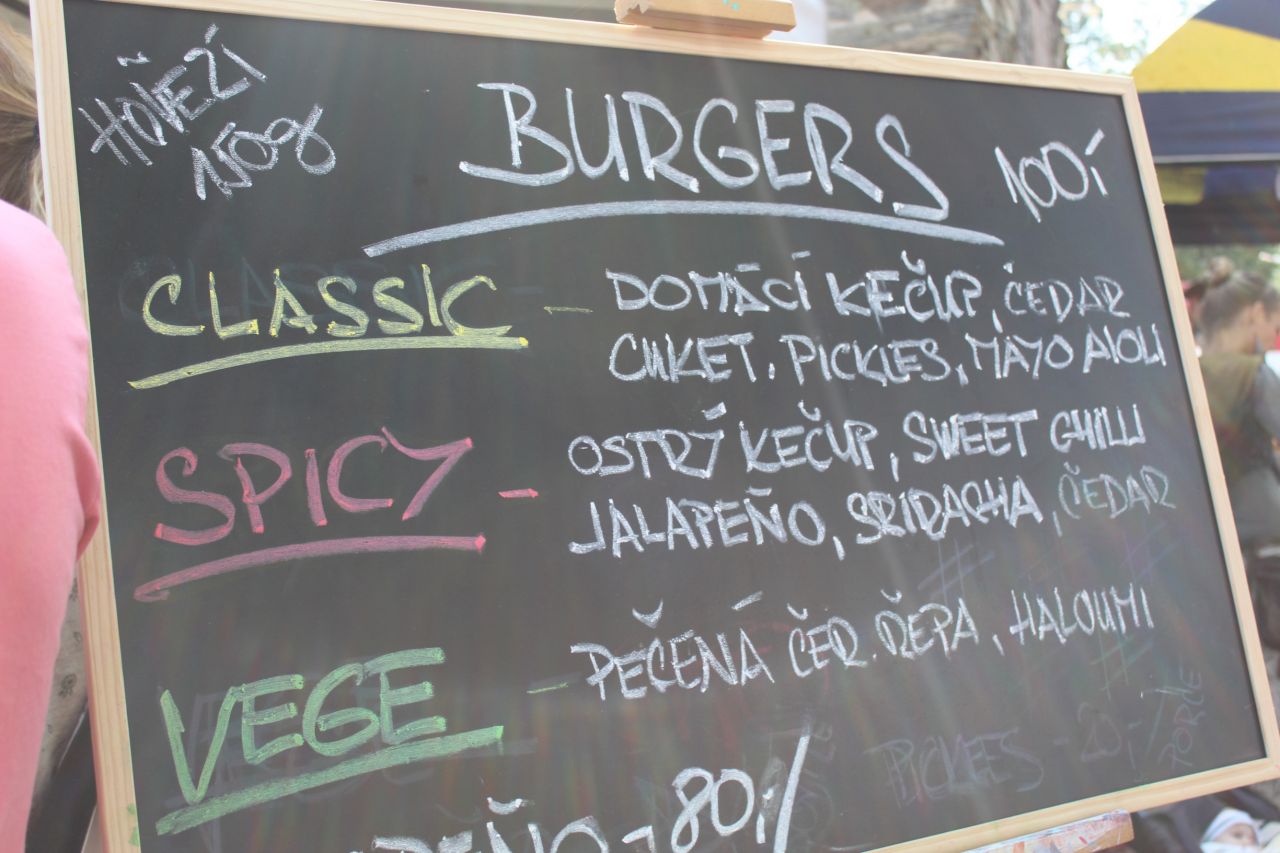 HOVĚZÍ
150g
BURGERS
100,-
CLASSIC - DOMÁCÍ KEČUP, ČEDAR
CUKET. PICKLES, MAYO AIOLI
SPICY - OSTRÝ KEČUP, SWEET CHILLI
JALAPEÑO, SRIRACHA, ČEDAR
VEGE - PEČENÁ ČER. ŘEPA, HALOUMI
PICKLES - 20,-/
PORCE
PEÑO - 80,-/